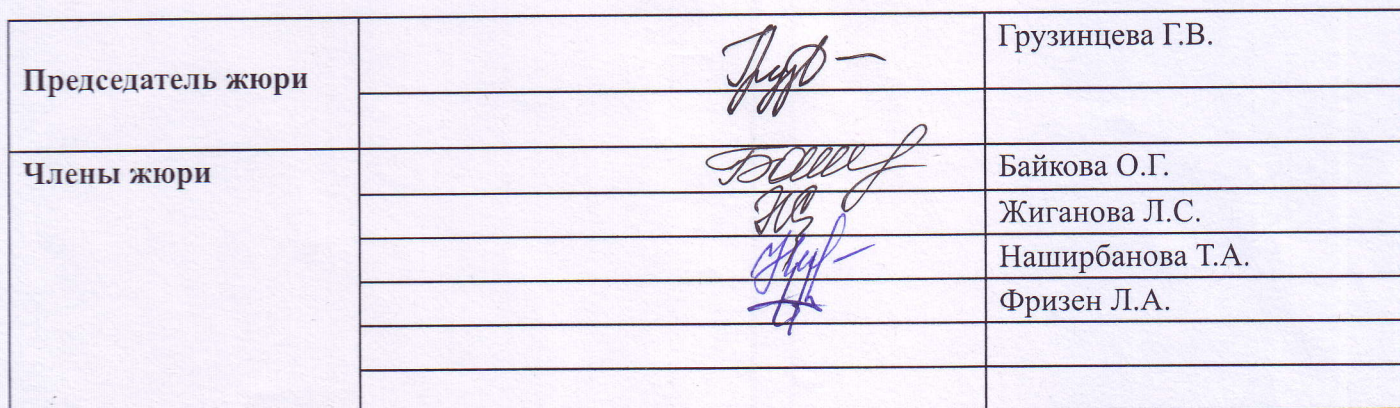 Председатель жюри
Грузинцева Г.В.
Члены жюри
Байкова О.Г.
Жиганова Л.С.
Наширбанова Т.А.
Фризен Л.А.